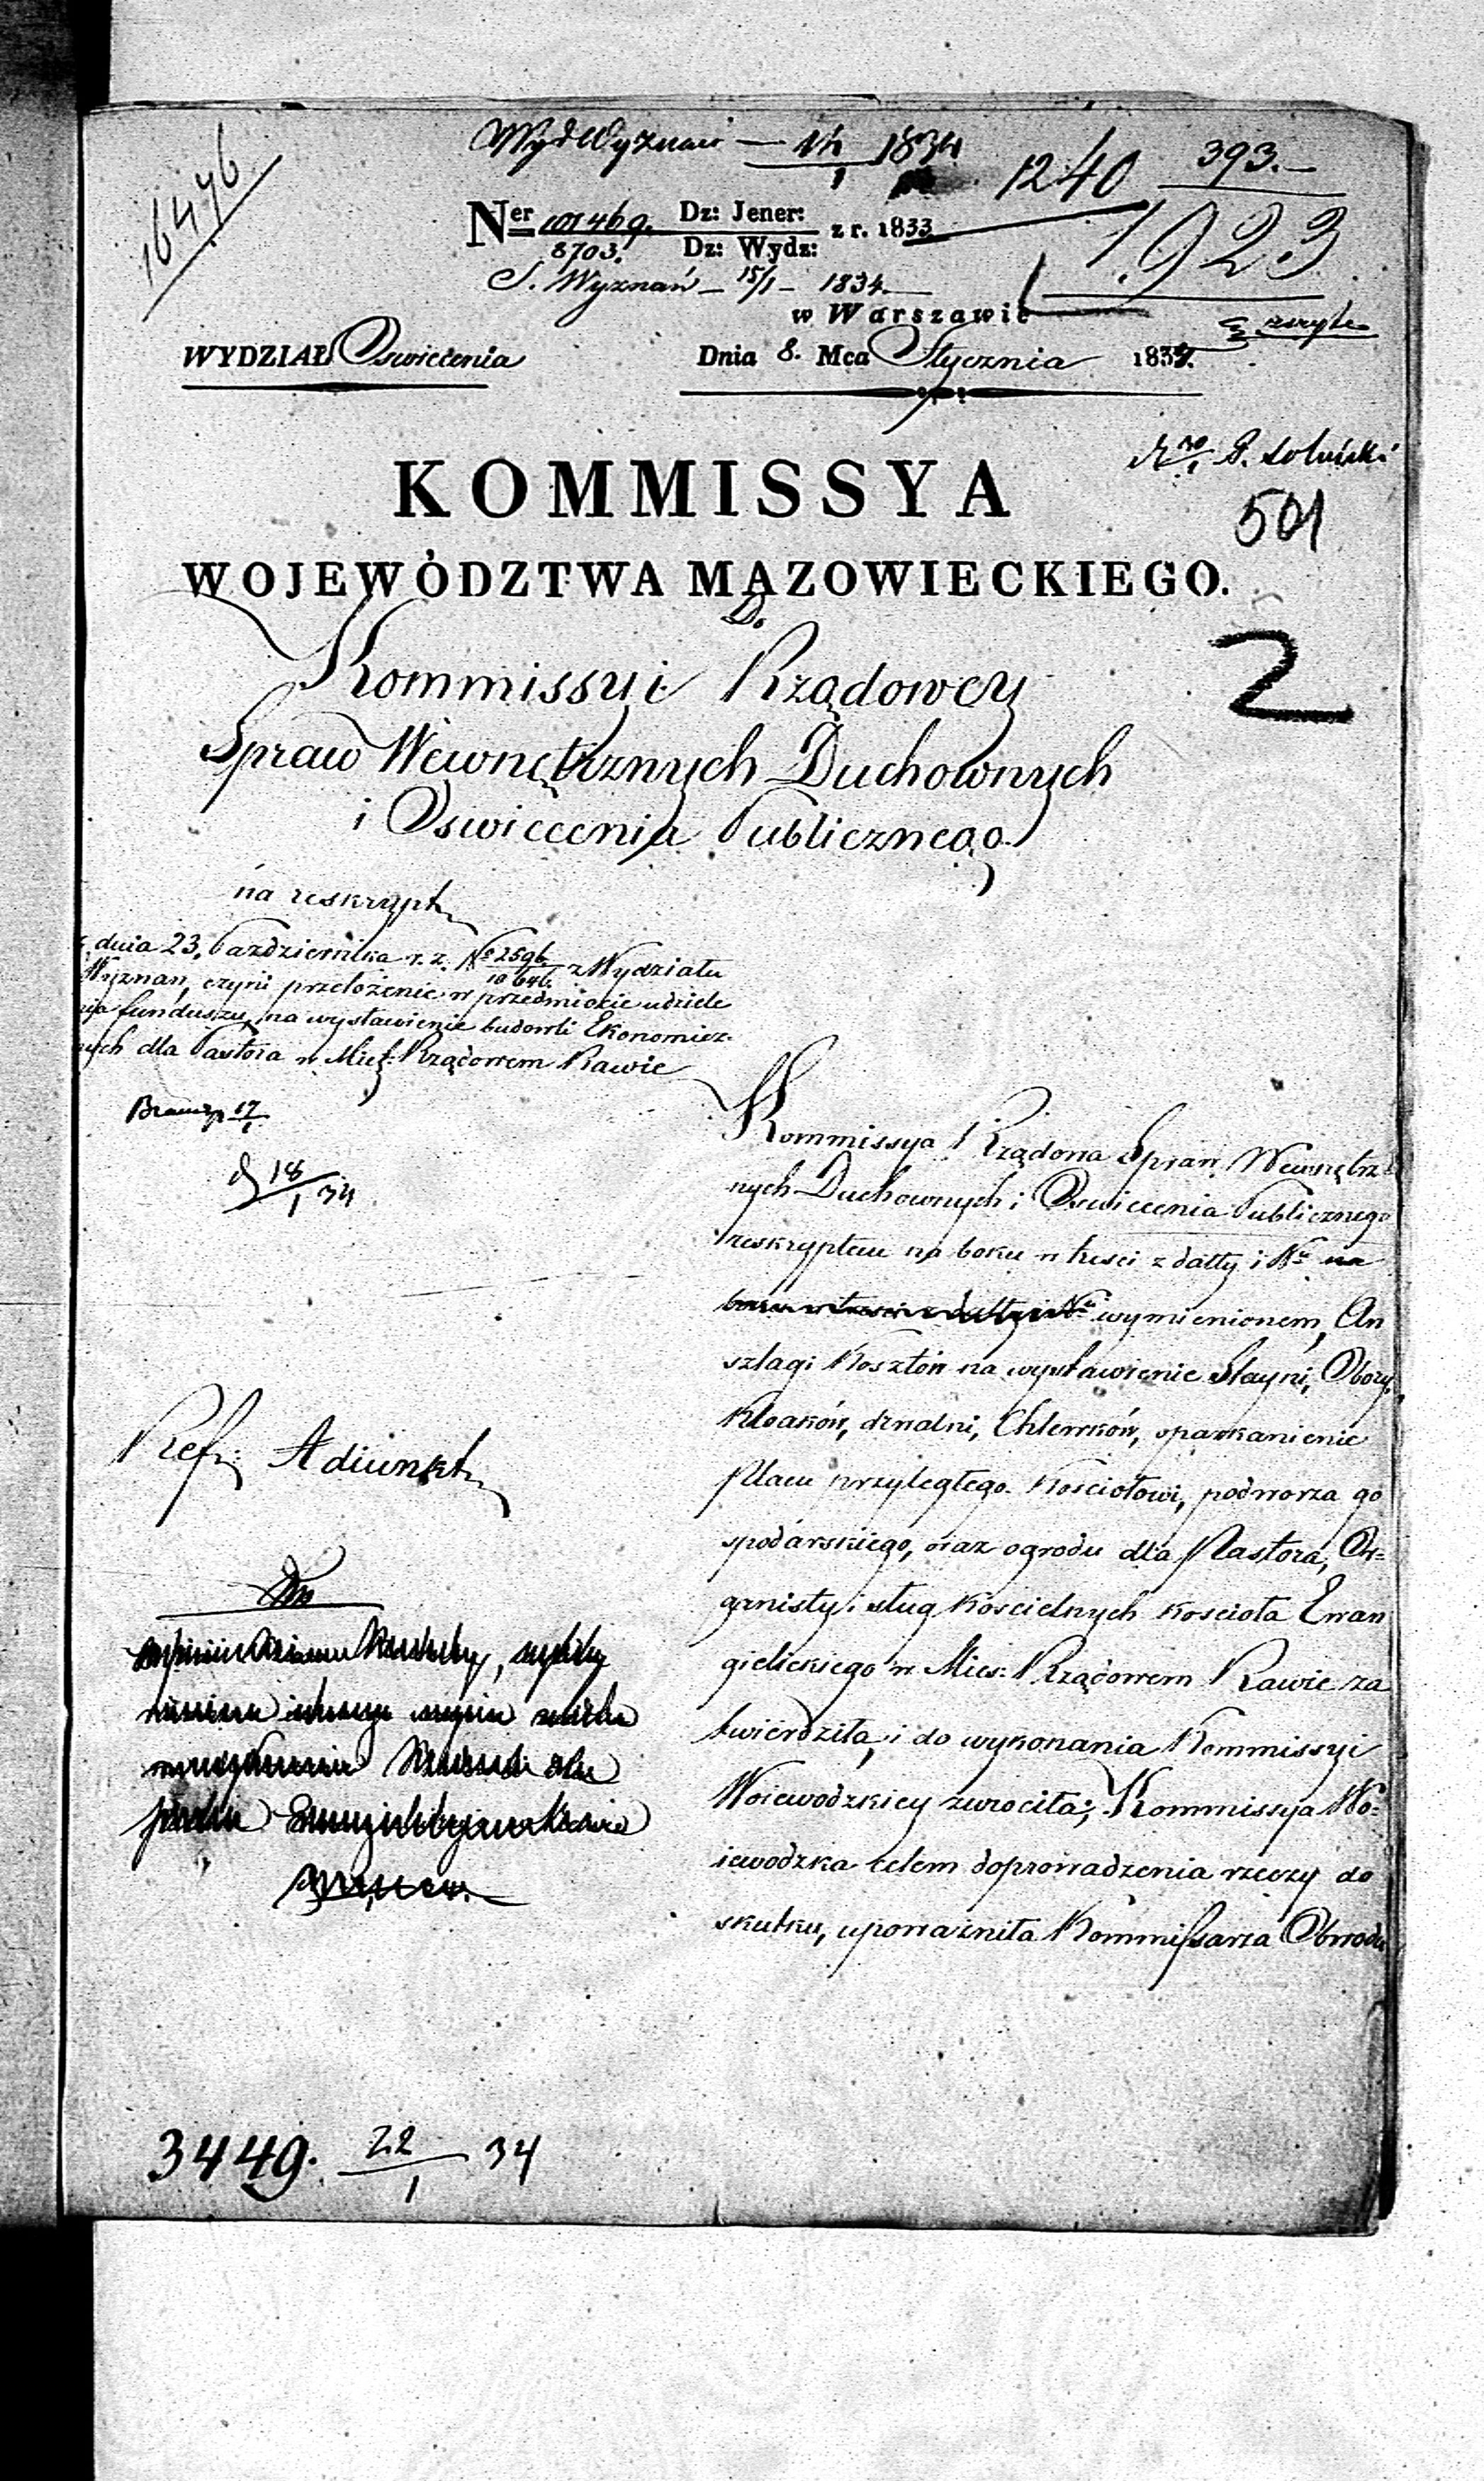 16476
WydWyznań — 14/1 1834
1240
393.—
1923
Ner 101469. Dz: Jener: z r. 1833
8703. Dz: Wydz:
S. Wyznań — 15/1 — 1834.
w Warszawie
WYDZIAŁ Oswiecenia
Dnia 8. Mca Stycznia 1834.
501
KOMMISSYA
WOJEWÓDZTWA MAZOWIECKIEGO.
2
Do
Kommissyi Rządowey
Spraw Wewnętrznych Duchownych
i Oswiecenia Publicznego
na reskrypt
z dnia 23. Pazdziernika r. z. No 2596/10646. z Wydziału
Wyznań, czyni przełożenie w przedmiocie udziele
nia funduszu, na wystawienie budowli Ekonomicz-
nych dla Pastora w Mieś: Rządowem Rawie
17/1
18/1 34
Kommissya Rządowa Spraw Wewnętrz-
nych Duchownych i Oswiecenia Publicznego
reskryptem na boku w treści z datty i Nu na
wymienionem, An
szlagi Kosztów na wystawienie Stayni, Obory,
Kloaków, drwalni, Chlewków, oparkanienie
Placu przyległego Kościołowi, podworza go
spodarskiego, oraz ogrodu dla Pastora, Or-
ganisty i sług Kościelnych kościoła Ewan
gielickiego w Mies: Rządowem Rawie za
twierdziła, i do wykonania Kommissyi
Woiewodzkiey zwrociła; Kommissya Wo-
iewodzka celem doprowadzenia rzeczy do
skutku, upoważniła Kommissarza Obwodu
Ref: Adiunkt
3449. 22/1 34